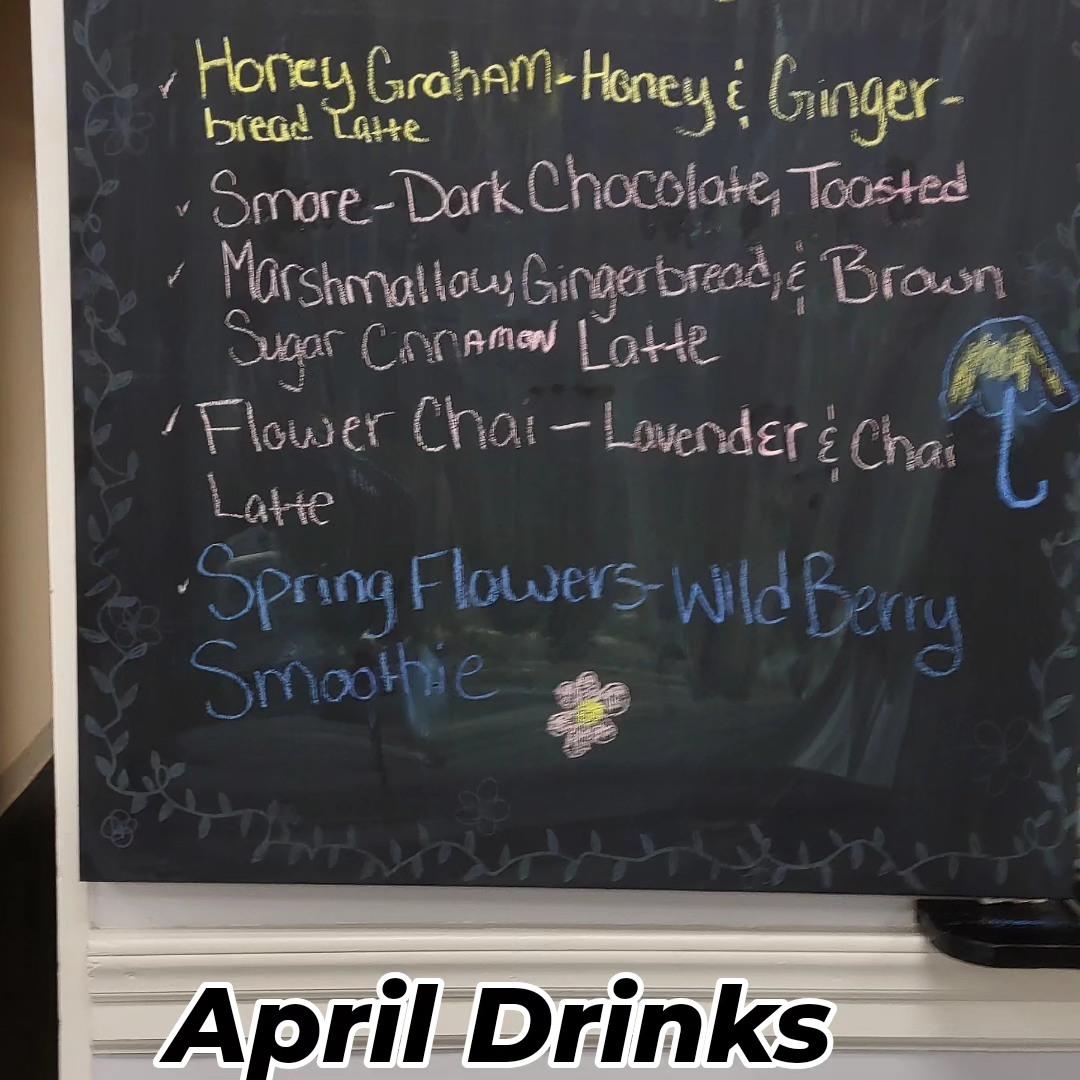 Honey Graham - Honey & Ginger-
bread Latte
Smore - Dark Chocolate, Toasted
Marshmallow, Gingerbread, & Brown
Sugar Cinnamon Latte
Flower Chai - Lavender & Chai
Latte
Spring Flowers - Wild Berry
Smoothie
April Drinks